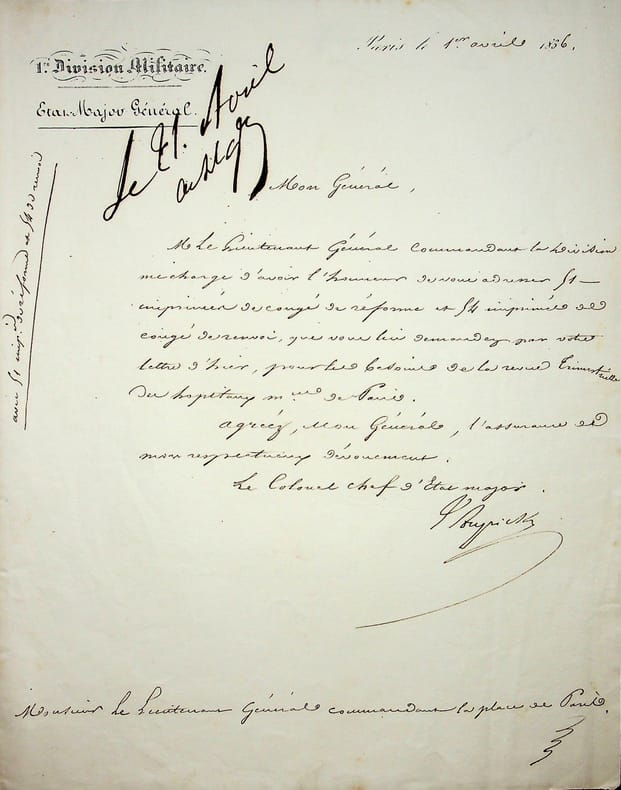 Paris le 1er avril 1836.
1re Division Militaire.
Etat-Major Général.
Le 21. Avril
Mon Général,
M. Le Lieutenant Général commandant la Division
me charge d'avoir l'honneur de vous adresser 51
imprimés de congé de réforme et 54 imprimés de
congé de renvoi, que vous lui demandez par votre
lettre d'hier, pour les besoins de la revue Trimestrielle
des hopitaux m.res de Paris.
agréez, Mon Général, l'assurance de
mon respectueux dévouement.
Le Colonel chef d'Etat major.
Monsieur Le Lieutenant Général commandant la place de Paris.
avec 51 imp.és de réforme et 54 de renvoi